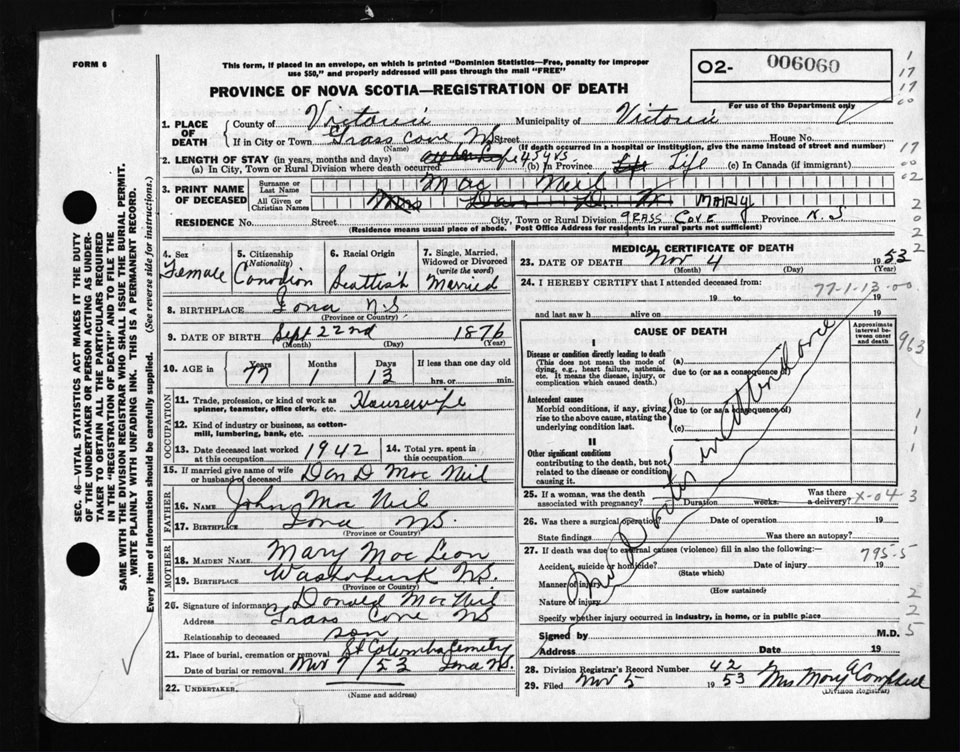 FORM 6
This form, if placed in an envelope, on which is printed "Dominion Statistics—Free, penalty for improper
use $50," and properly addressed will pass through the mail "FREE"
02- 006060
PROVINCE OF NOVA SCOTIA—REGISTRATION OF DEATH
For use of the Department only
1. PLACE OF DEATH { County of Victoria Municipality of Victoria
If in City or Town Grass Cove N.S. Street House No.
(Name) (If death occurred in a hospital or institution, give the name instead of street and number)
2. LENGTH OF STAY (in years, months and days)
(a) In City, Town or Rural Division where death occurred 45 yrs (b) In Province Life Life (c) In Canada (if immigrant)
3. PRINT NAME OF DECEASED { Surname or Last Name Mac Neil
All Given or Christian Names Mrs Dan D. MARY
RESIDENCE No. Street City, Town or Rural Division GRASS COVE Province N.S
(Residence means usual place of abode. Post Office Address for residents in rural parts not sufficient)
4. Sex Female
5. Citizenship (Nationality) Canadian
6. Racial Origin Scottish
7. Single, Married, Widowed or Divorced (write the word) Married
8. BIRTHPLACE Iona N.S
(Province or Country)
9. DATE OF BIRTH Sept 22nd 1876
(Month) (Day) (Year)
10. AGE in { Years 77 Months 1 Days 13 If less than one day old hrs. or min.
OCCUPATION
11. Trade, profession, or kind of work as spinner, teamster, office clerk, etc. Housewife
12. Kind of industry or business, as cotton-mill, lumbering, bank, etc.
13. Date deceased last worked at this occupation 1942
14. Total yrs. spent in this occupation
15. If married give name of wife or husband of deceased Dan D Mac Neil
FATHER
16. NAME John Mac Neil
17. BIRTHPLACE Iona N.S.
(Province or Country)
MOTHER
18. MAIDEN NAME Mary Mac Lean
19. BIRTHPLACE Washabuck N.S.
(Province or Country)
20. Signature of informant Donald MacNeil
Address Grass Cove N.S
Relationship to deceased son
21. Place of burial, cremation or removal St Columba Cemetery
Date of burial or removal Nov 7/53 Iona N.S.
22. UNDERTAKER
(Name and address)
MEDICAL CERTIFICATE OF DEATH
23. DATE OF DEATH Nov 4 1953
(Month) (Day) (Year)
24. I HEREBY CERTIFY that I attended deceased from: 77-1-13-00
19 to 19
and last saw h alive on 19
CAUSE OF DEATH
Approximate interval between onset and death
I
Disease or condition directly leading to death
(This does not mean the mode of dying, e.g., heart failure, asthenia, etc. It means the disease, injury, or complication which caused death.)
(a)
due to (or as a consequence of)
Antecedent causes
Morbid conditions, if any, giving rise to the above cause, stating the underlying condition last.
(b)
due to (or as a consequence of)
(c)
II
Other significant conditions
contributing to the death, but not related to the disease or condition causing it.
No Doctor in attendance
25. If a woman, was the death associated with pregnancy? Duration weeks. Was there a delivery? X-04 3
26. Was there a surgical operation? Date of operation 19
State findings Was there an autopsy?
27. If death was due to external causes (violence) fill in also the following:— 795-5
Accident, suicide or homicide? Date of injury 19
(State which)
Manner of injury
(How sustained)
Nature of injury
Specify whether injury occurred in industry, in home, or in public place
Signed by M.D.
Address Date 19
28. Division Registrar's Record Number 42
29. Filed Nov 5 1953 Mrs Mary A Campbell
(Division Registrar)
SEC. 46—VITAL STATISTICS ACT MAKES IT THE DUTY
OF THE UNDERTAKER OR PERSON ACTING AS UNDER-
TAKER TO OBTAIN ALL THE PARTICULARS REQUIRED
IN THE "REGISTRATION OF DEATH" AND TO FILE THE
SAME WITH THE DIVISION REGISTRAR WHO SHALL ISSUE THE BURIAL PERMIT.
WRITE PLAINLY WITH UNFADING INK. THIS IS A PERMANENT RECORD.
Every item of information should be carefully supplied. (See reverse side for instructions.)
1
17
17
00
17
00
02
2
0
2
0
2
2
963
1
1
1
2
2
5